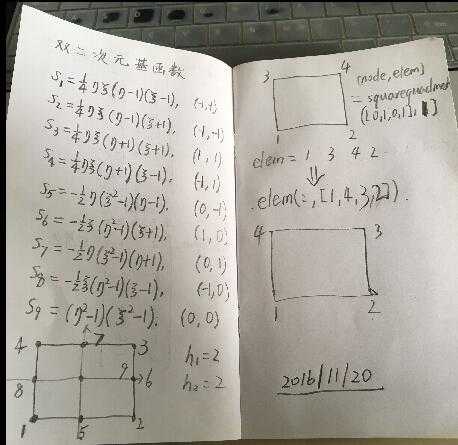 双二次元基函数
S₁=¼ηξ(η-1)(ξ-1), (-1,-1)
S₂=¼ηξ(η-1)(ξ+1), (1,-1)
S₃=¼ηξ(η+1)(ξ+1), (1,1)
S₄=¼ηξ(η+1)(ξ-1), (-1,1)
S₅=-½η(ξ²-1)(η-1), (0,-1)
S₆=-½ξ(η²-1)(ξ+1), (1,0)
S₇=-½η(ξ²-1)(η+1), (0,1)
S₈=-½ξ(η²-1)(ξ-1), (-1,0)
S₉=(η²-1)(ξ²-1). (0,0)
4 7 3
8 9 6
1 5 2
h₁=2
h₂=2
3 4
1 2
[node,elem]
=squarequadmesh
([0,1,0,1],1)
elem = 1 3 4 2
⇓
elem(:,[1,4,3,2]).
4 3
1 2
2016/11/20